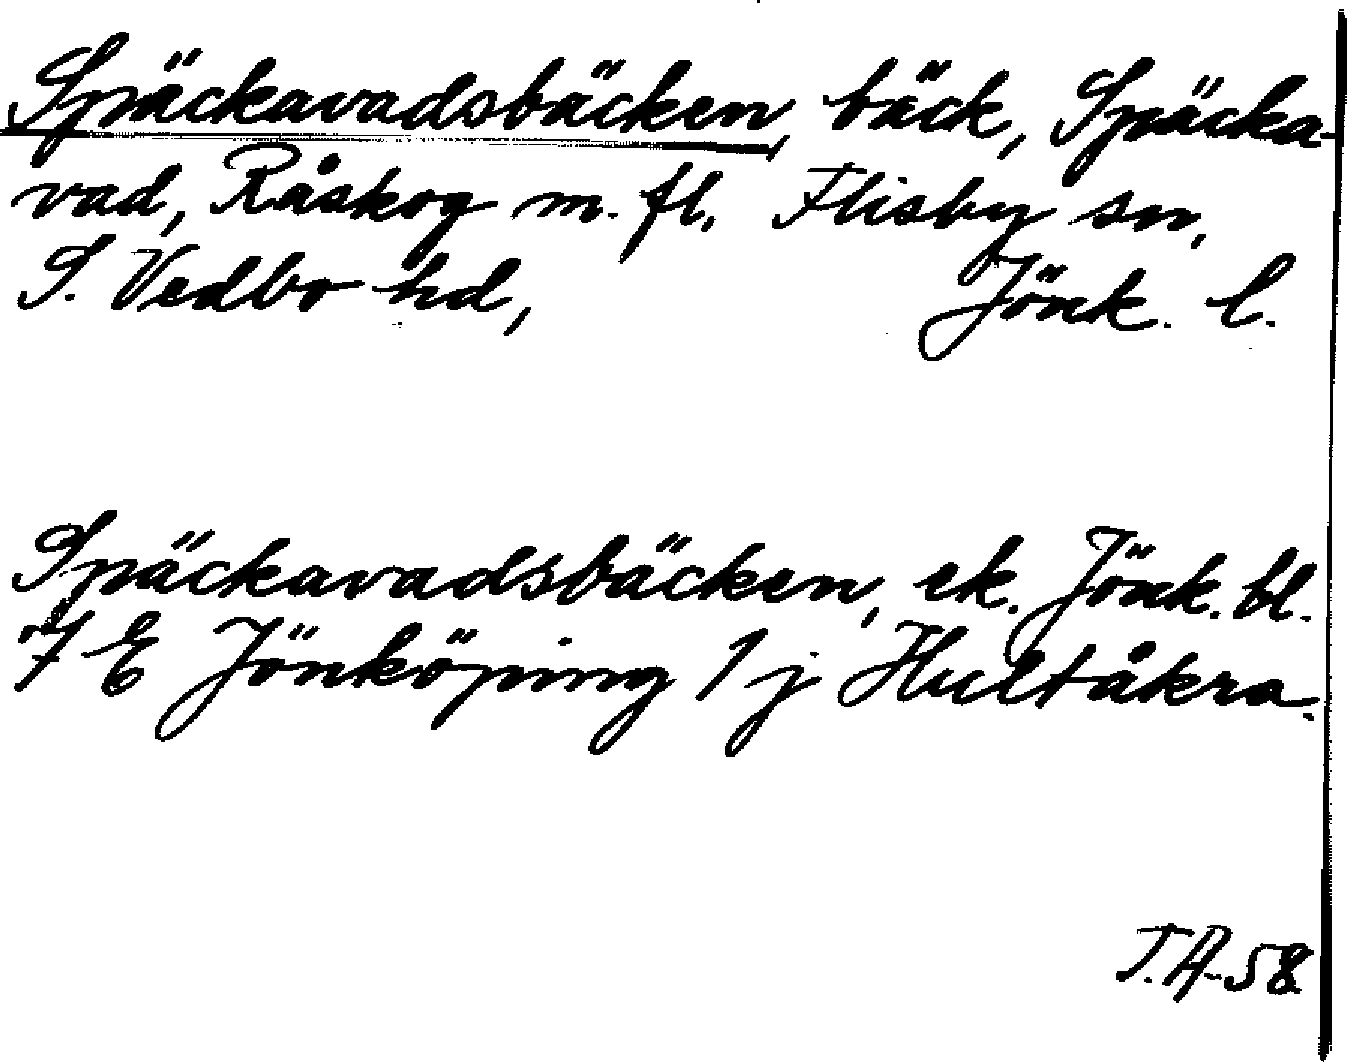 Späckavadsbäcken, bäck, Späcka-
vad, Råskog m. fl. Flisby sn,
S. Vedbo hd, Jönk. l.
Späckavadsbäcken, ek. Jönk. bl.
7 E Jönköping 1 j Hultåkra.
T.A-58